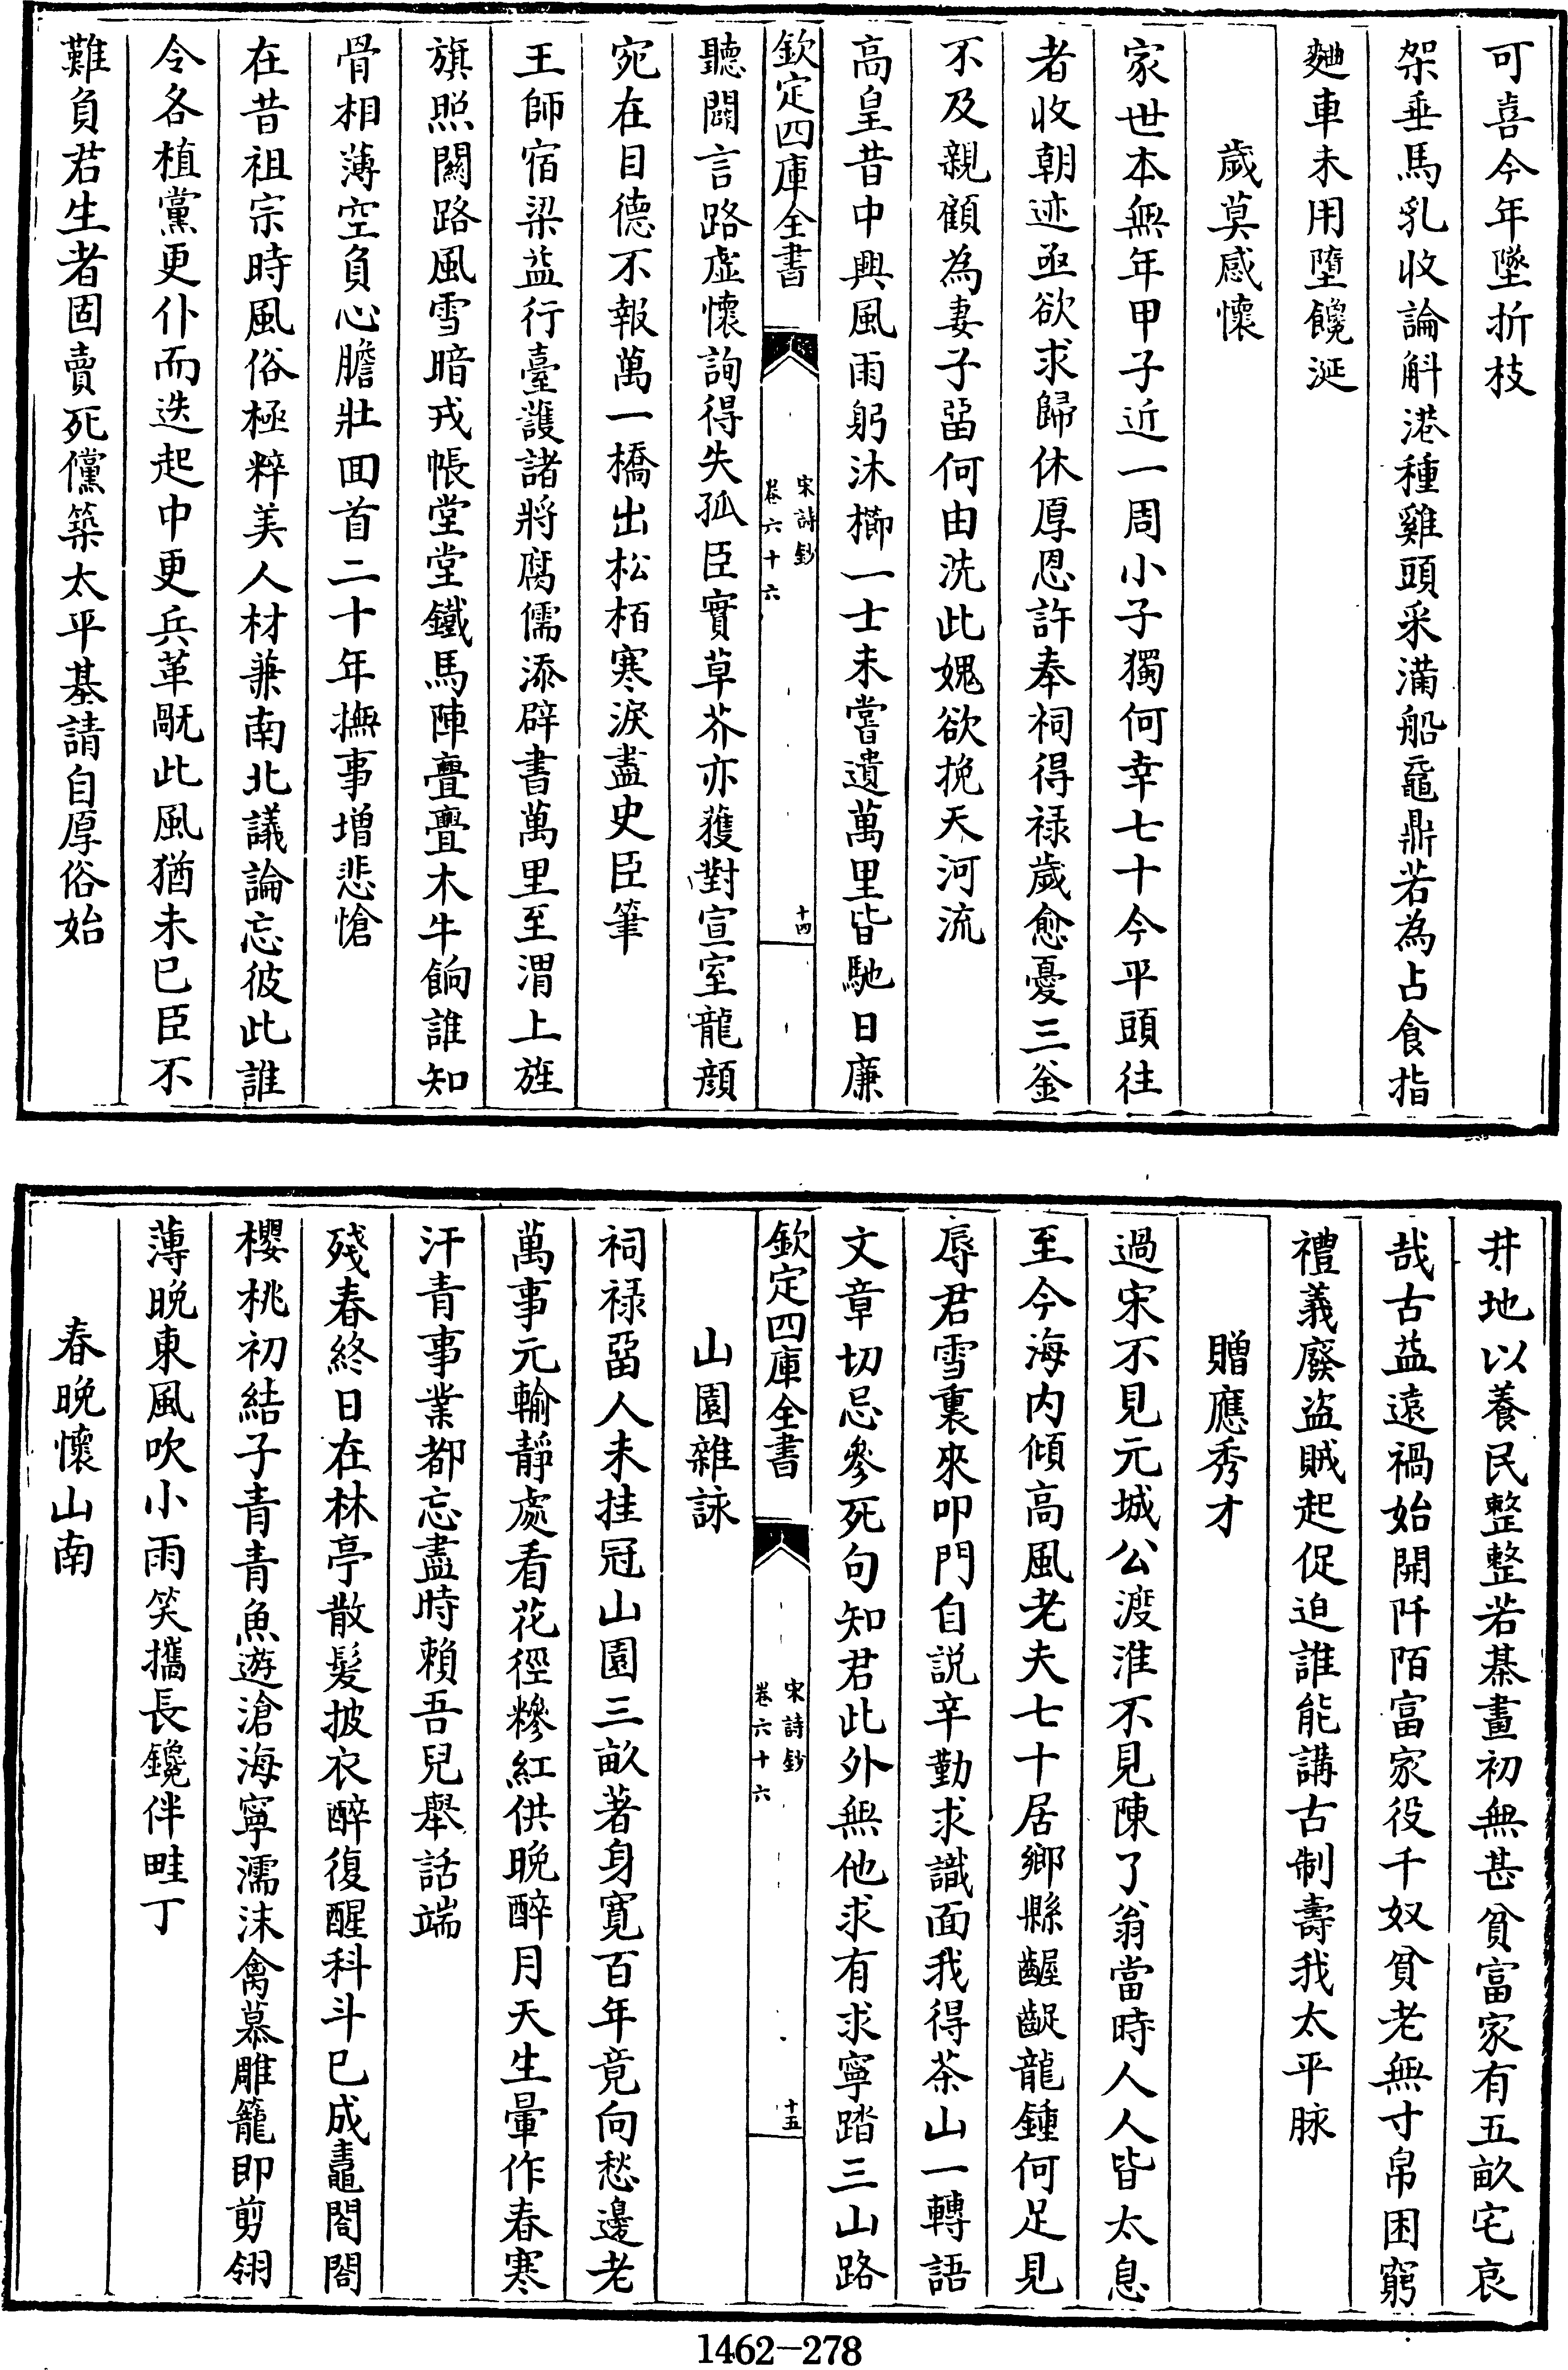 可喜今年墜折枝
架垂馬乳收論斛港種雞頭采滿船黿鼎若為占食指
麹車未用墮饞涎
歲莫感懷
家世本無年甲子近一周小子獨何幸七十今平頭往
者收朝迹亟欲求歸休厚恩許奉祠得禄歲愈憂三釡
不及親顧為妻子畱何由洗此媿欲挽天河流
高皇昔中興風雨躬沐櫛一士未嘗遺萬里皆馳日廉
欽定四庫全書
宋詩鈔
卷六十六
十四
聽闢言路虛懷詢得失孤臣實草芥亦蒦對宣室龍顔
宛在目德不報萬一橋出松栢寒淚盡史臣筆
王師宿梁益行臺護諸將腐儒添辟書萬里至渭上旌
旗照關路風雪暗戎帳堂堂鐵馬陣亹亹木牛餉誰知
骨相薄空負心膽壯囬首二十年撫事增悲愴
在昔祖宗時風俗極粹美人材兼南北議論忘彼此誰
令各植黨更仆而迭起中更兵革㞐此風猶未已臣不
難負君生者固賣死儻築太平基請自厚俗始
井地以養民整整若棊畫初無甚貧富家有五畝宅哀
哉古益遠禍始開阡陌富家役千奴貧老無寸帛困窮
禮義廢盜賊起促迫誰能講古制壽我太平脉
贈應秀才
過宋不見元城公渡淮不見陳了翁當時人人皆太息
至今海内傾高風老夫七十居鄉縣齷齪龍鍾何足見
辱君雪裏來叩門自説辛勤求識面我得茶山一轉語
文章切忌參死句知君此外無他求有求寧踏三山路
欽定四庫全書
宋詩鈔
卷六十六
十五
山園雜詠
祠禄畱人未挂冠山園三畝著身寛百年竟向愁邊老
萬事元輸靜處看花徑糝紅供晚醉月天生暈作春寒
汗青事業都忘盡時賴吾兒舉話端
殘春終日在林亭散髮披衣醉復醒科斗已成鼃閤閤
櫻桃初結子青青魚遊滄海寧濡沫禽慕雕籠即剪翎
薄晚東風吹小雨笑攜長鑱伴畦丁
春晚懷山南
1462-278